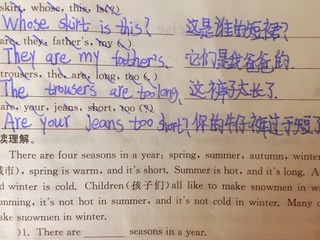 skirt, whose, this, is(?)
Whose skirt is this? 这是谁的短裙?
are, they, father's, my (.)
They are my father's. 它们是我爸爸的.
trousers, the, are, long, too (.)
The trousers are too long. 这裤子太长了.
are, your, jeans, short, too (?)
Are your jeans too short? 你的牛仔裤过于短了
读理解。
There are four seasons in a year: spring, summer, autumn, winter
城市), spring is warm, and it's short. Summer is hot, and it's long. A
d winter is cold. Children(孩子们)all like to make snowmen in wi
unming, it's not hot in summer, and it's not cold in winter. Many c
ake snowmen in winter.
)1. There are ______ seasons in a year.